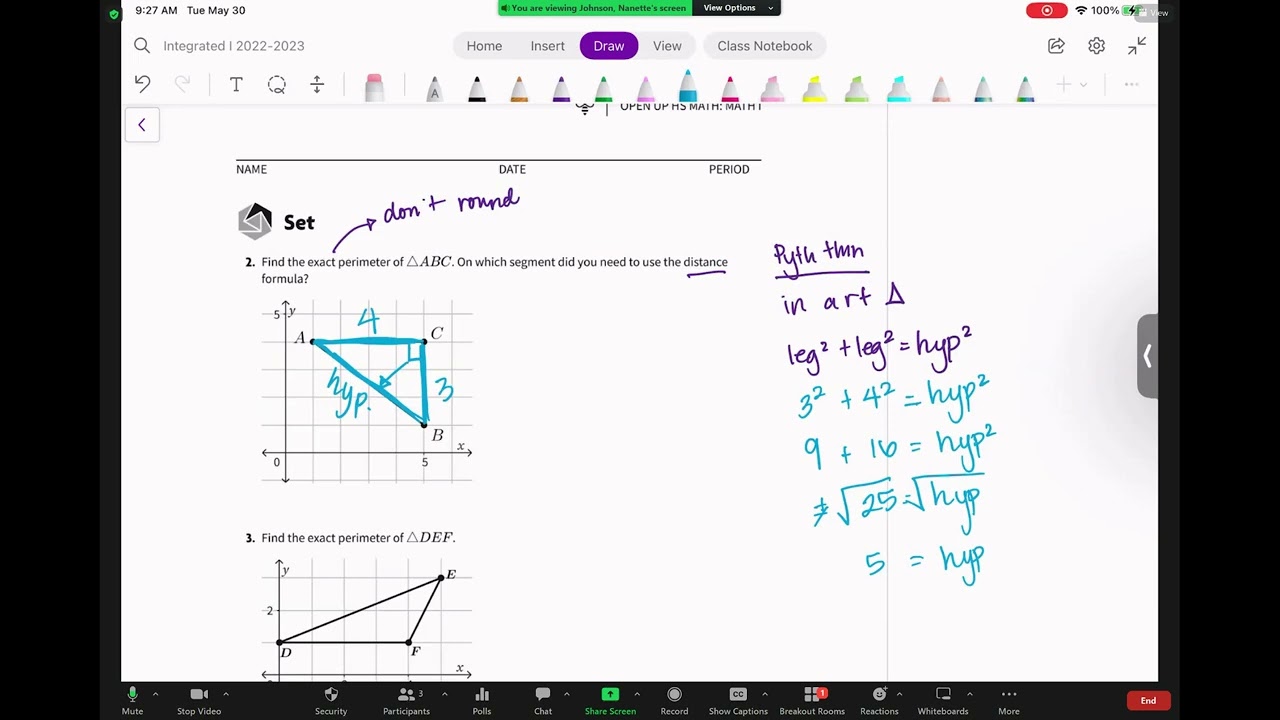 9:27 AM Tue May 30
You are viewing Johnson, Nanette's screen
View Options
100%
View
Integrated I 2022-2023
Home Insert Draw View Class Notebook
T
A
OPEN UP HS MATH: MATH 1
NAME DATE PERIOD
don't round
Set
2. Find the exact perimeter of △ABC. On which segment did you need to use the distance
formula?
5 y
A 4 C
hyp. 3
B
x
0 5
Pyth thm
in a rt Δ
leg² + leg² = hyp²
3² + 4² = hyp²
9 + 16 = hyp²
≠√25 = √hyp
5 = hyp
3. Find the exact perimeter of △DEF.
y
E
2
D F
x
Mute Stop Video Security Participants 3 Polls Chat Share Screen Record Show Captions Breakout Rooms 1 Reactions Whiteboards More End